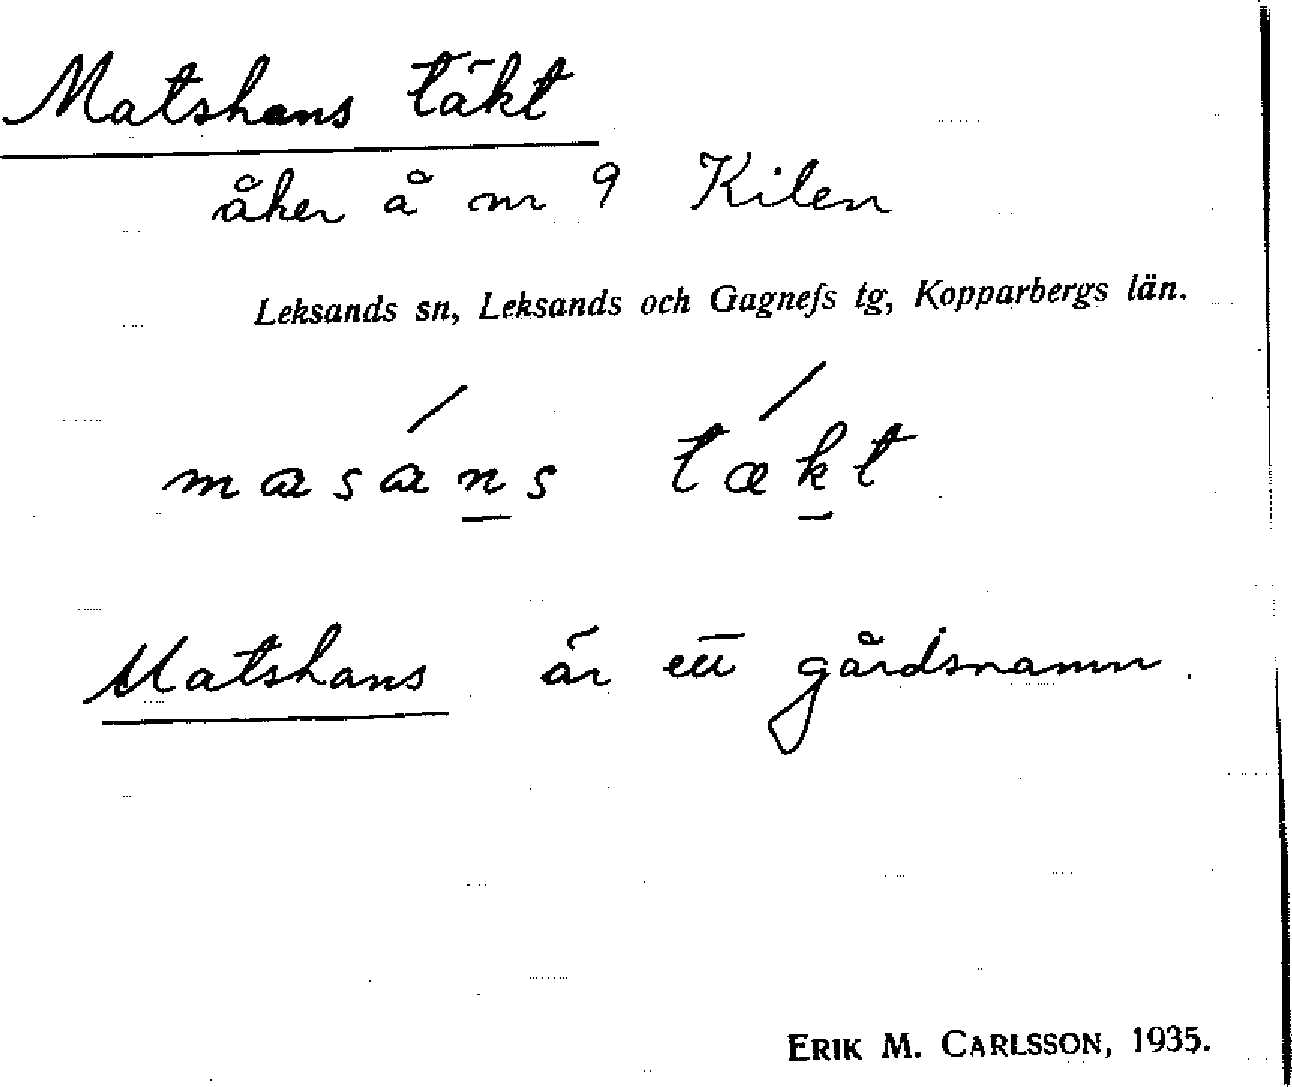 Matshans täkt
åker å nr 9 Kilen
Leksands sn, Leksands och Gagnefs tg, Kopparbergs län.
masáns tǽkt
Matshans är ett gårdsnamn.
ERIK M. CARLSSON, 1935.